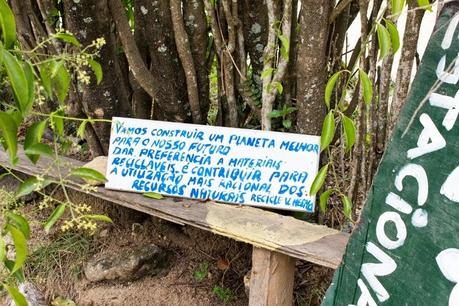 VAMOS CONSTRUIR UM PLANETA MELHOR
PARA O NOSSO FUTURO
DAR PREFERÊNCIA A MATERIAIS
RECICLAVEIS É CONTRIBUIR PARA
A UTILIZAÇÃO MAIS RACIONAL DOS
RECURSOS NATURAIS RECICLE
ESTACION
CIONA